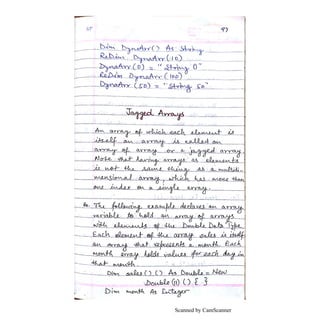 97
Dim DynaArr() As String
ReDim DynaArr(10)
DynaArr(0) = "String 0"
ReDim DynaArr(100)
DynaArr(50) = "String 50"
Jagged Arrays
An array of which each element is
itself an array is called an
array of array or a jagged array.
Note that having arrays as elements
is not the same thing as a multidi-
mensional array, which has more than
one index on a single array.
The following example declares an array
variable to hold an array of arrays
with elements of the Double Data Type.
Each element of the array sales is itself
an array that represents a month. Each
month array holds values for each day in
that month.
Dim sales()() As Double = New
Double(11)() { }
Dim month As Integer
Scanned by CamScanner